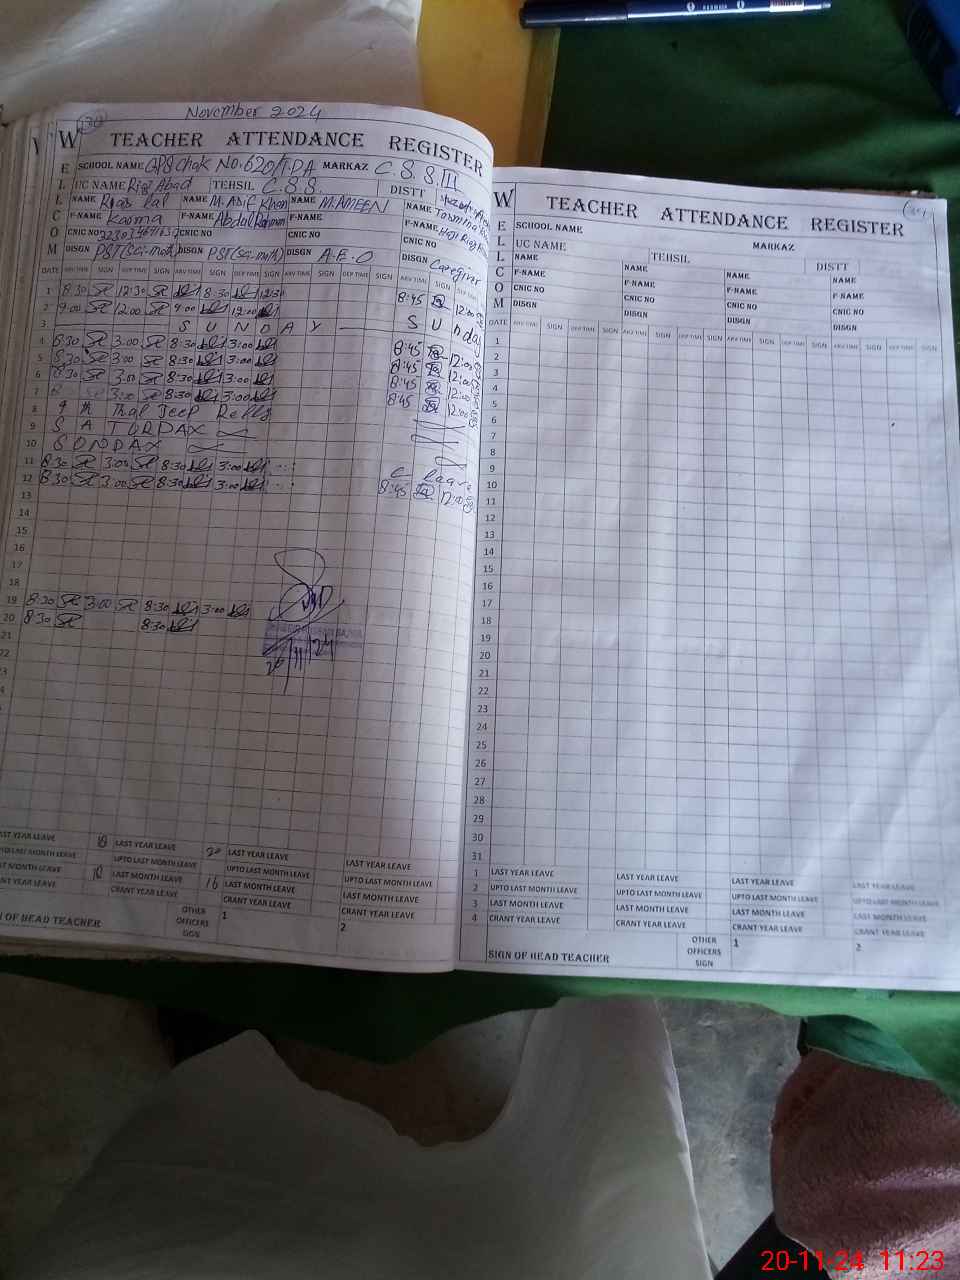 November 2024
130
W TEACHER ATTENDANCE REGISTER
E SCHOOL NAME GPS Chak No. 620/TDA MARKAZ C.S.S.III
L UC NAME Riaz Abad TEHSIL C.S.S. DISTT
L NAME Riaz Lal NAME M. Asif Khan NAME M. AMEEN NAME
C F-NAME F-NAME Abdul Rahman F-NAME F-NAME
O CNIC NO CNIC NO CNIC NO CNIC NO
M DISGN PST (Sci-math) DISGN PST (Sci-math) DISGN A.E.O DISGN Caregiver
DATE ARV TIME SIGN DEP TIME SIGN ARV TIME SIGN DEP TIME SIGN ARV TIME SIGN DEP TIME SIGN ARV TIME SIGN DEP TIME
1 8:30 12:30 8:30 12:30 8:45
2 9:00 12:00 9:00 12:00
3 SUNDAY Sunday
4 8:30 3:00 8:30 3:00 8:45 12:00
5 8:30 3:00 8:30 3:00 8:45 12:00
6 8:30 3:00 8:30 3:00 8:45 12:00
7 3:00 8:30 3:00 8:45 12:00
8 Thal Jeep Relly
9 SATURDAX
10 SONDAX
11 8:30 3:00 8:30 3:00 C. leave
12 8:30 3:00 8:30 3:00 8:45 12:00
13
14
15
16
17
18
19 8:30 3:00 8:30 3:00
20 8:30 8:30
21
22
20/11/24
LAST YEAR LEAVE 18 LAST YEAR LEAVE 20 LAST YEAR LEAVE LAST YEAR LEAVE
LAST MONTH LEAVE UPTO LAST MONTH LEAVE UPTO LAST MONTH LEAVE UPTO LAST MONTH LEAVE
LAST MONTH LEAVE LAST MONTH LEAVE 16 LAST MONTH LEAVE LAST MONTH LEAVE
YEAR LEAVE CRANT YEAR LEAVE CRANT YEAR LEAVE CRANT YEAR LEAVE
N OF HEAD TEACHER OTHER OFFICERS SIGN 1 2
W TEACHER ATTENDANCE REGISTER
E SCHOOL NAME MARKAZ
L UC NAME TEHSIL DISTT
L NAME NAME NAME NAME
C F-NAME F-NAME F-NAME F-NAME
O CNIC NO CNIC NO CNIC NO CNIC NO
M DISGN DISGN DISGN DISGN
DATE ARV TIME SIGN DEP TIME SIGN ARV TIME SIGN DEP TIME SIGN ARV TIME SIGN DEP TIME SIGN ARV TIME SIGN DEP TIME SIGN
1
2
3
4
5
6
7
8
9
10
11
12
13
14
15
16
17
18
19
20
21
22
23
24
25
26
27
28
29
30
31
1 LAST YEAR LEAVE LAST YEAR LEAVE LAST YEAR LEAVE LAST YEAR LEAVE
2 UPTO LAST MONTH LEAVE UPTO LAST MONTH LEAVE UPTO LAST MONTH LEAVE UPTO LAST MONTH LEAVE
3 LAST MONTH LEAVE LAST MONTH LEAVE LAST MONTH LEAVE LAST MONTH LEAVE
4 CRANT YEAR LEAVE CRANT YEAR LEAVE CRANT YEAR LEAVE CRANT YEAR LEAVE
SIGN OF HEAD TEACHER OTHER OFFICERS SIGN 1 2
20-11-24 11:23